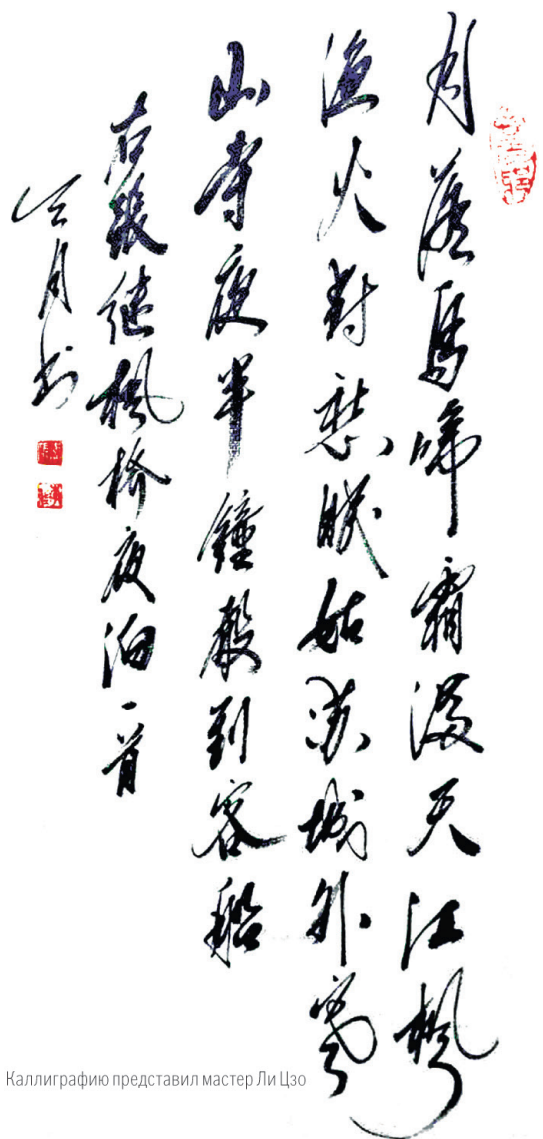 月落烏啼霜滿天江楓
漁火對愁眠姑蘇城外寒
山寺夜半鐘聲到客船
右張繼楓橋夜泊一首
月书
Каллиграфию представил мастер Ли Цзо